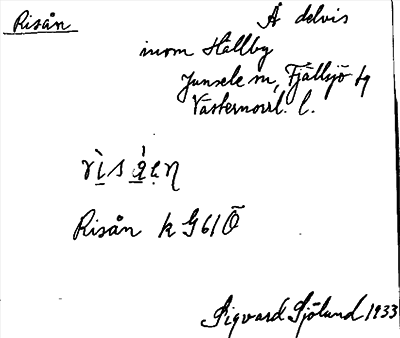 Risån
Å delvis
inom Hållby
Junsele sn, Fjällsjö tg
Västernorrl. l.
Risån k G61 Ö
Sigvard Sjölund 1933